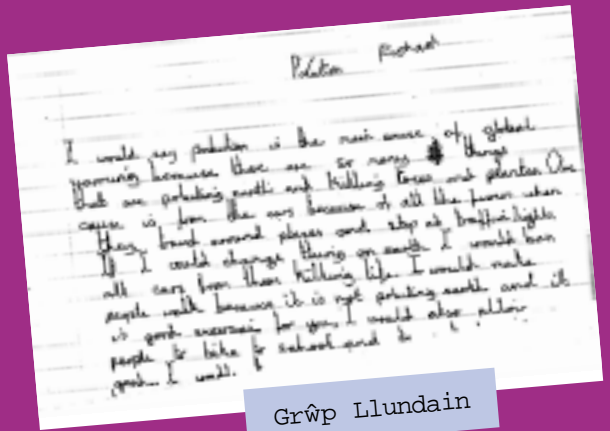 Polution Richard
I would say polution is the main cause of global
because there are so many things
that are poluting earth and killing trees and plants. One
cause is from the cars because of all the fumes when
they travel around places and stop at traffic lights.
If I could change thing on earth I would ban
all cars from them killing life. I would make
people walk because it is not poluting earth and it
is good for you, I would also allow
people to bike to school and to
I would.
Grŵp Llundain